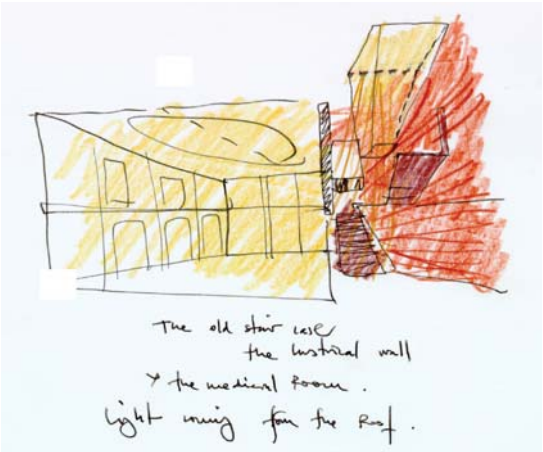 The old stair case
the historical wall
+ the medieval Room.
light coming from the Roof.